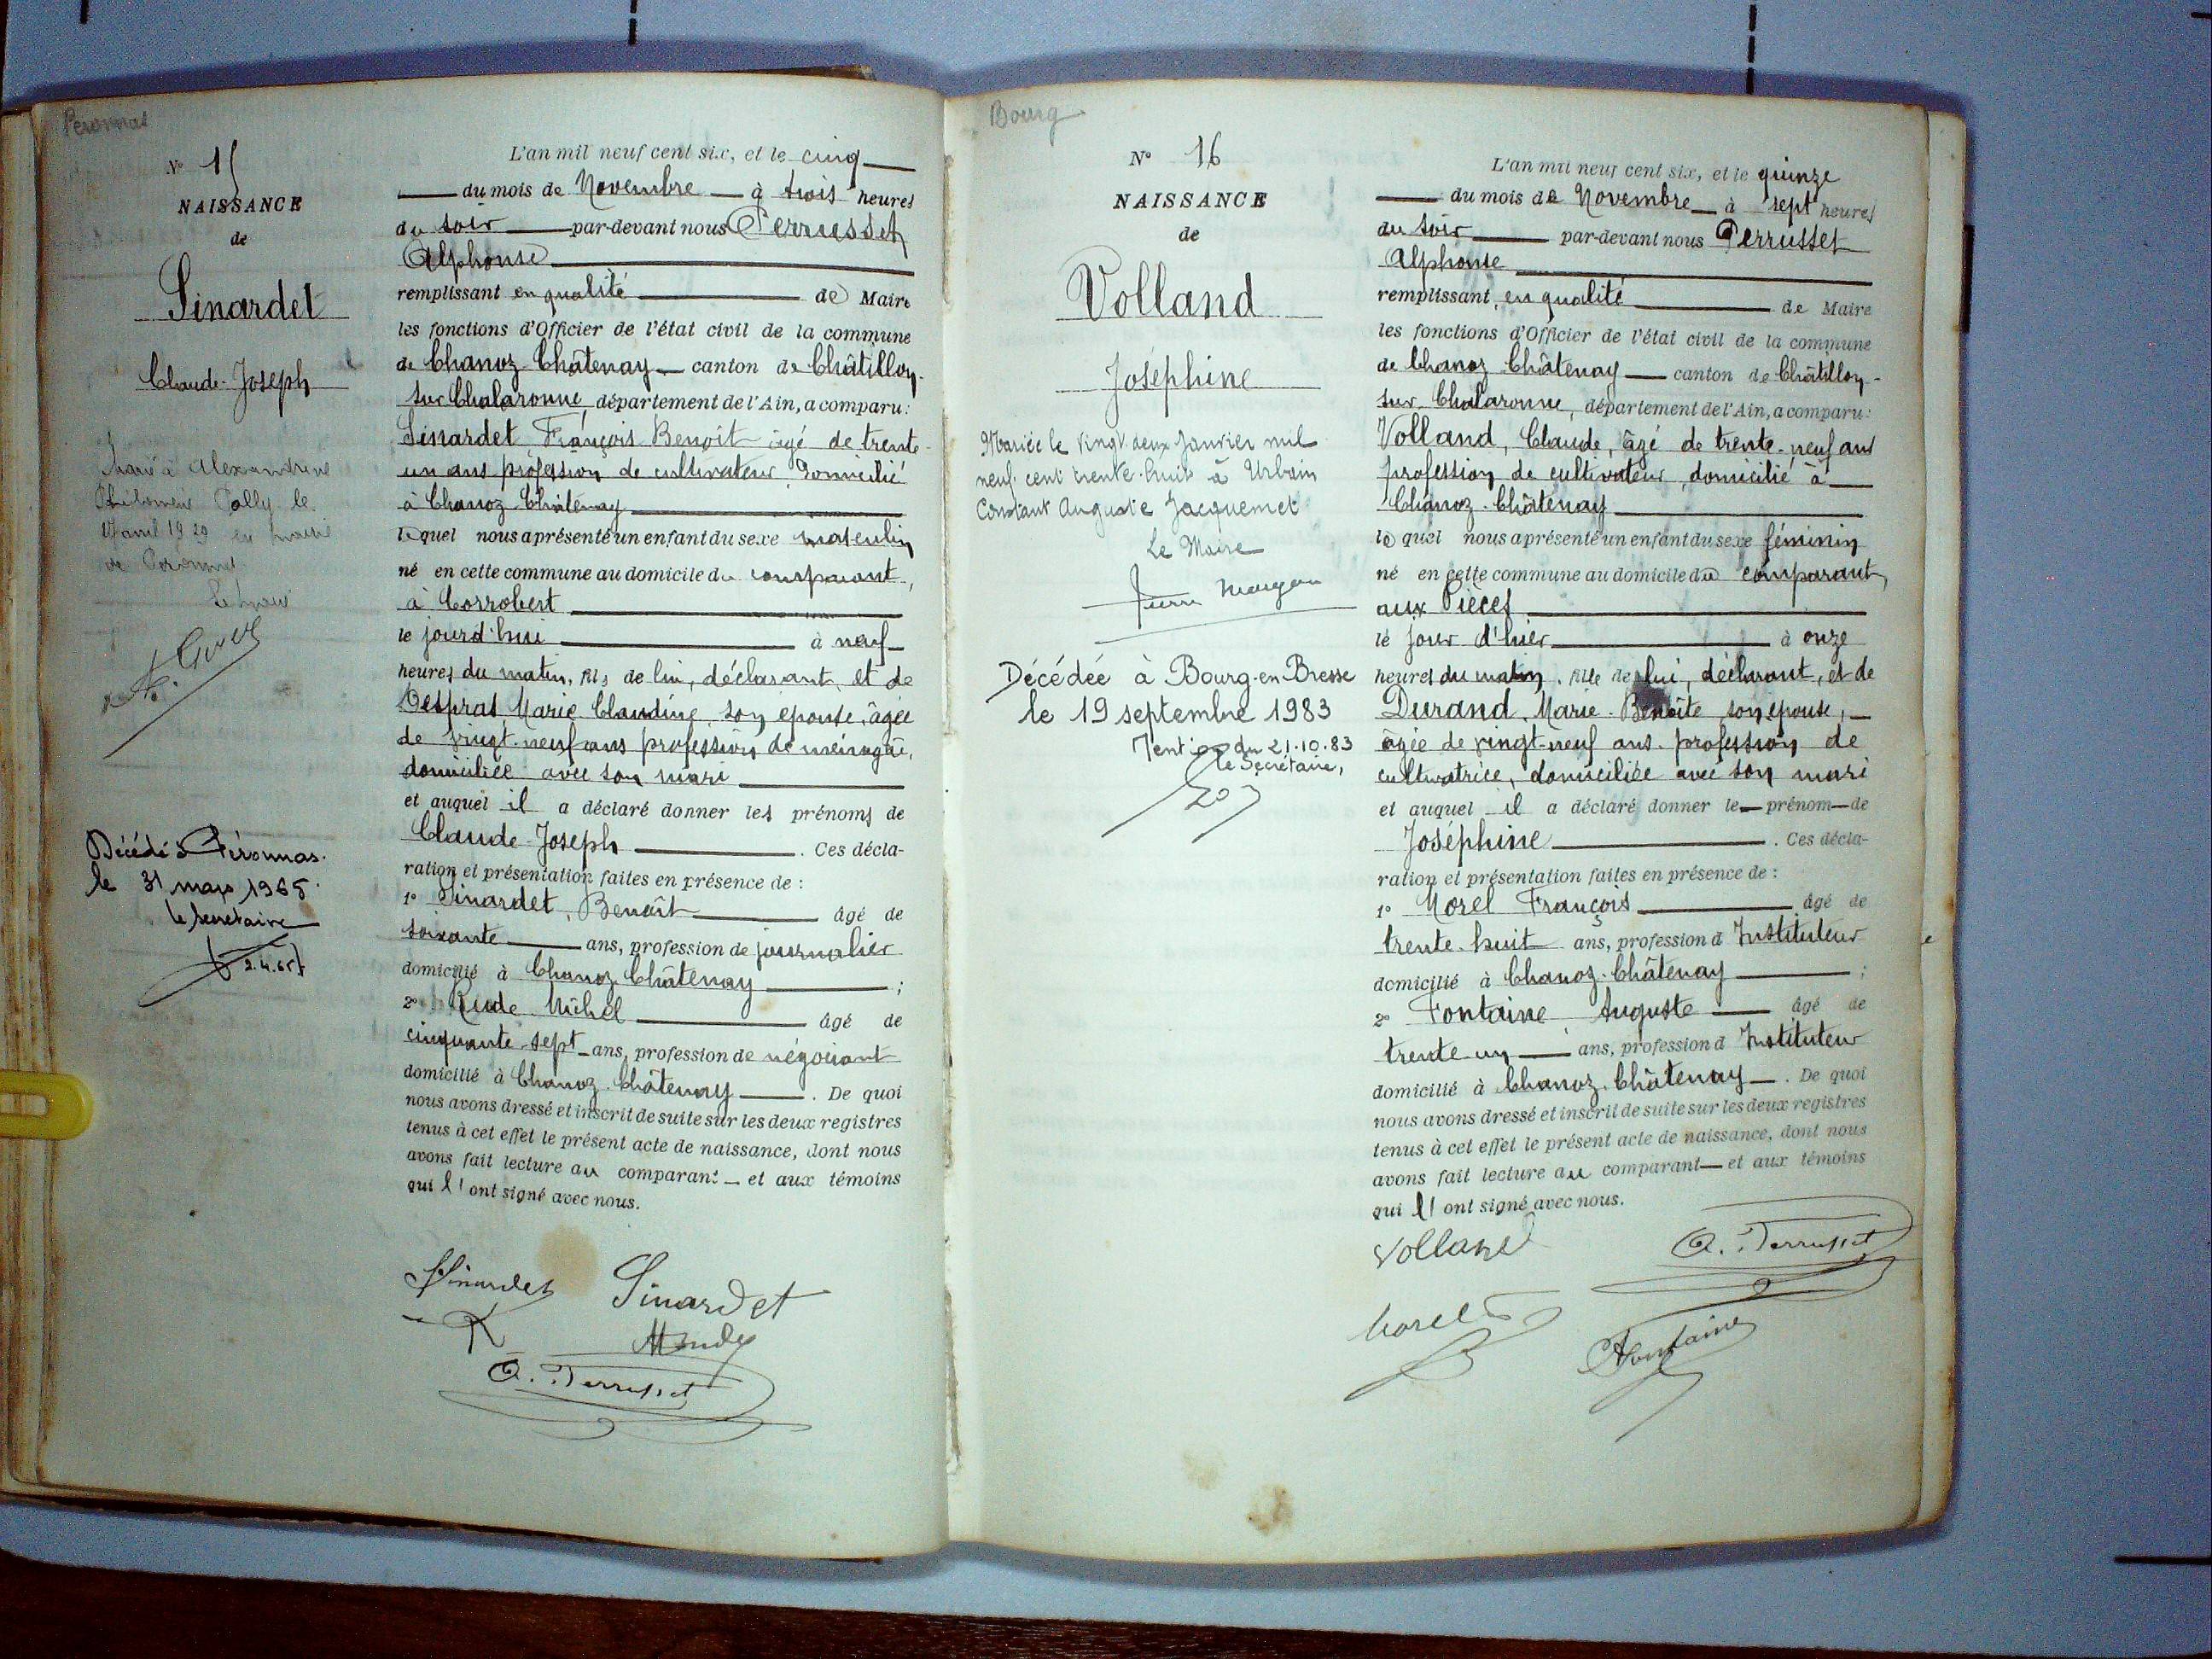 Péronnas
N° 15
NAISSANCE
de
Sinardet
Claude-Joseph
Marié à Alexandrine
Philomène Polly le
avril 1929 en mairie
de Péronnas
Le Maire
Décédé à Péronnas.
le 31 mars 1965.
le secrétaire
2.4.65
L'an mil neuf cent six, et le cinq
du mois de Novembre à trois heures
du soir par-devant nous Perrusset
Alphonse
remplissant en qualité de Maire
les fonctions d'Officier de l'état civil de la commune
de Chanoz-Châtenay canton de Châtillon-
sur Chalaronne, département de l'Ain, a comparu:
Sinardet François Benoît âgé de trente-
un ans profession de cultivateur domicilié
à Chanoz-Châtenay
lequel nous a présenté un enfant du sexe masculin
né en cette commune au domicile du comparant,
à Corrobert
le jourd'hui à neuf
heures du matin, fils de lui, déclarant, et de
Desprat, Marie Claudine, son épouse, âgée
de vingt-neuf ans profession de ménagère,
domiciliée avec son mari
et auquel il a déclaré donner les prénoms de
Claude-Joseph. Ces décla-
ration et présentation faites en présence de :
1° Sinardet, Benoît âgé de
soixante ans, profession de journalier
domicilié à Chanoz-Châtenay ;
2° Rude Michel âgé de
cinquante-sept ans, profession de négociant
domicilié à Chanoz-Châtenay. De quoi
nous avons dressé et inscrit de suite sur les deux registres
tenus à cet effet le présent acte de naissance, dont nous
avons fait lecture au comparant et aux témoins
qui l'ont signé avec nous.
Sinardet Sinardet
A. Perrusset
Bourg
N° 16
NAISSANCE
de
Volland
Joséphine
Mariée le vingt deux Janvier mil
neuf cent trente-huit à Urbain
Constant Auguste Jacquemet
Le Maire
Décédée à Bourg-en-Bresse
le 19 septembre 1983
Mention du 21.10.83
le Secrétaire,
L'an mil neuf cent six, et le quinze
du mois de Novembre à sept heures
du soir par-devant nous Perrusset
Alphonse
remplissant, en qualité de Maire
les fonctions d'Officier de l'état civil de la commune
de Chanoz-Châtenay canton de Châtillon-
sur-Chalaronne, département de l'Ain, a comparu:
Volland, Claude, âgé de trente-neuf ans
profession de cultivateur, domicilié à
Chanoz-Châtenay
lequel nous a présenté un enfant du sexe féminin
né en cette commune au domicile du comparant,
aux Pièces
le jour d'hier à onze
heures du matin, fille de lui, déclarant, et de
Durand, Marie-Benoîte, son épouse,
âgée de vingt-neuf ans. profession de
cultivatrice, domiciliée avec son mari
et auquel il a déclaré donner le prénom de
Joséphine. Ces décla-
ration et présentation faites en présence de :
1° Morel François âgé de
trente-huit ans, profession d'Instituteur
domicilié à Chanoz-Châtenay ;
2° Fontaine Auguste âgé de
trente-un ans, profession d'Instituteur
domicilié à Chanoz-Châtenay. De quoi
nous avons dressé et inscrit de suite sur les deux registres
tenus à cet effet le présent acte de naissance, dont nous
avons fait lecture au comparant et aux témoins
qui l'ont signé avec nous.
Volland A. Perrusset
Morel Fontaine